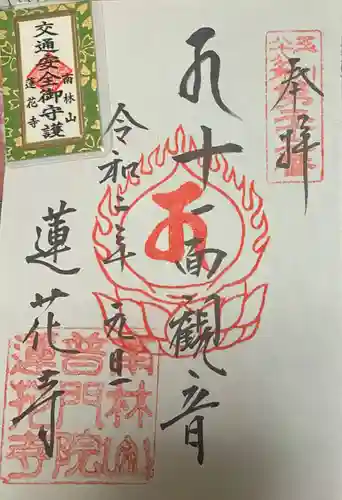 奉拝
十一面観音
令和三年 元旦
蓮花寺
南林山
普門院
蓮花寺
交通安全御守護
南林山
蓮花寺